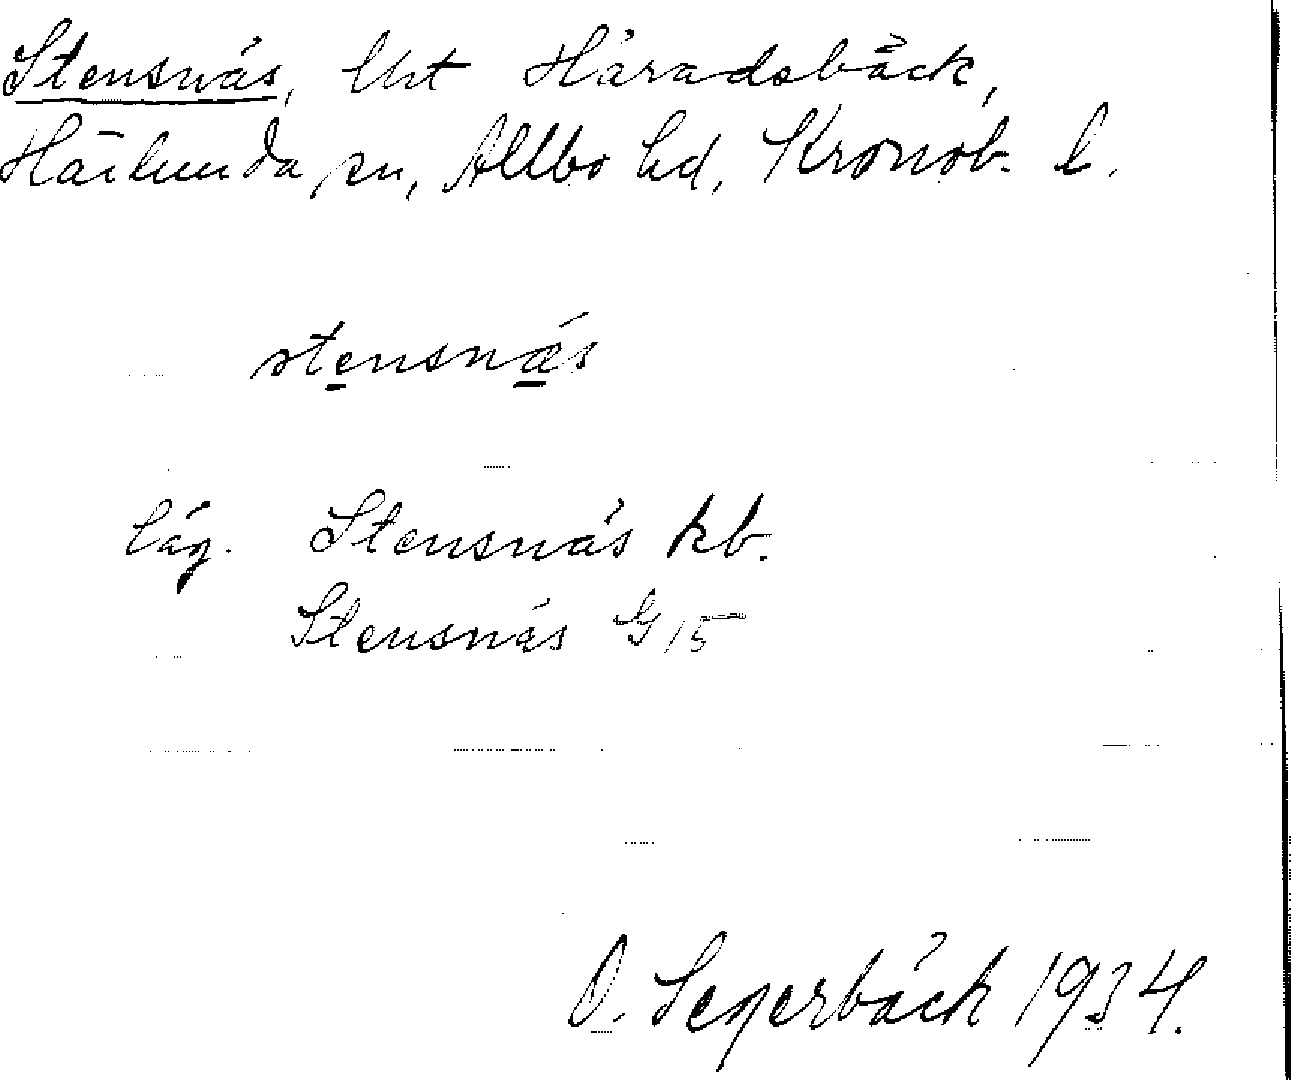 Stensnäs, Urt Häradsbäck,
Härlunda sn, Allbo hd, Kronob. l.
stensnæ̀s
läg. Stensnäs kb.
Stensnäs G 15
O. Segerbäck 1934.